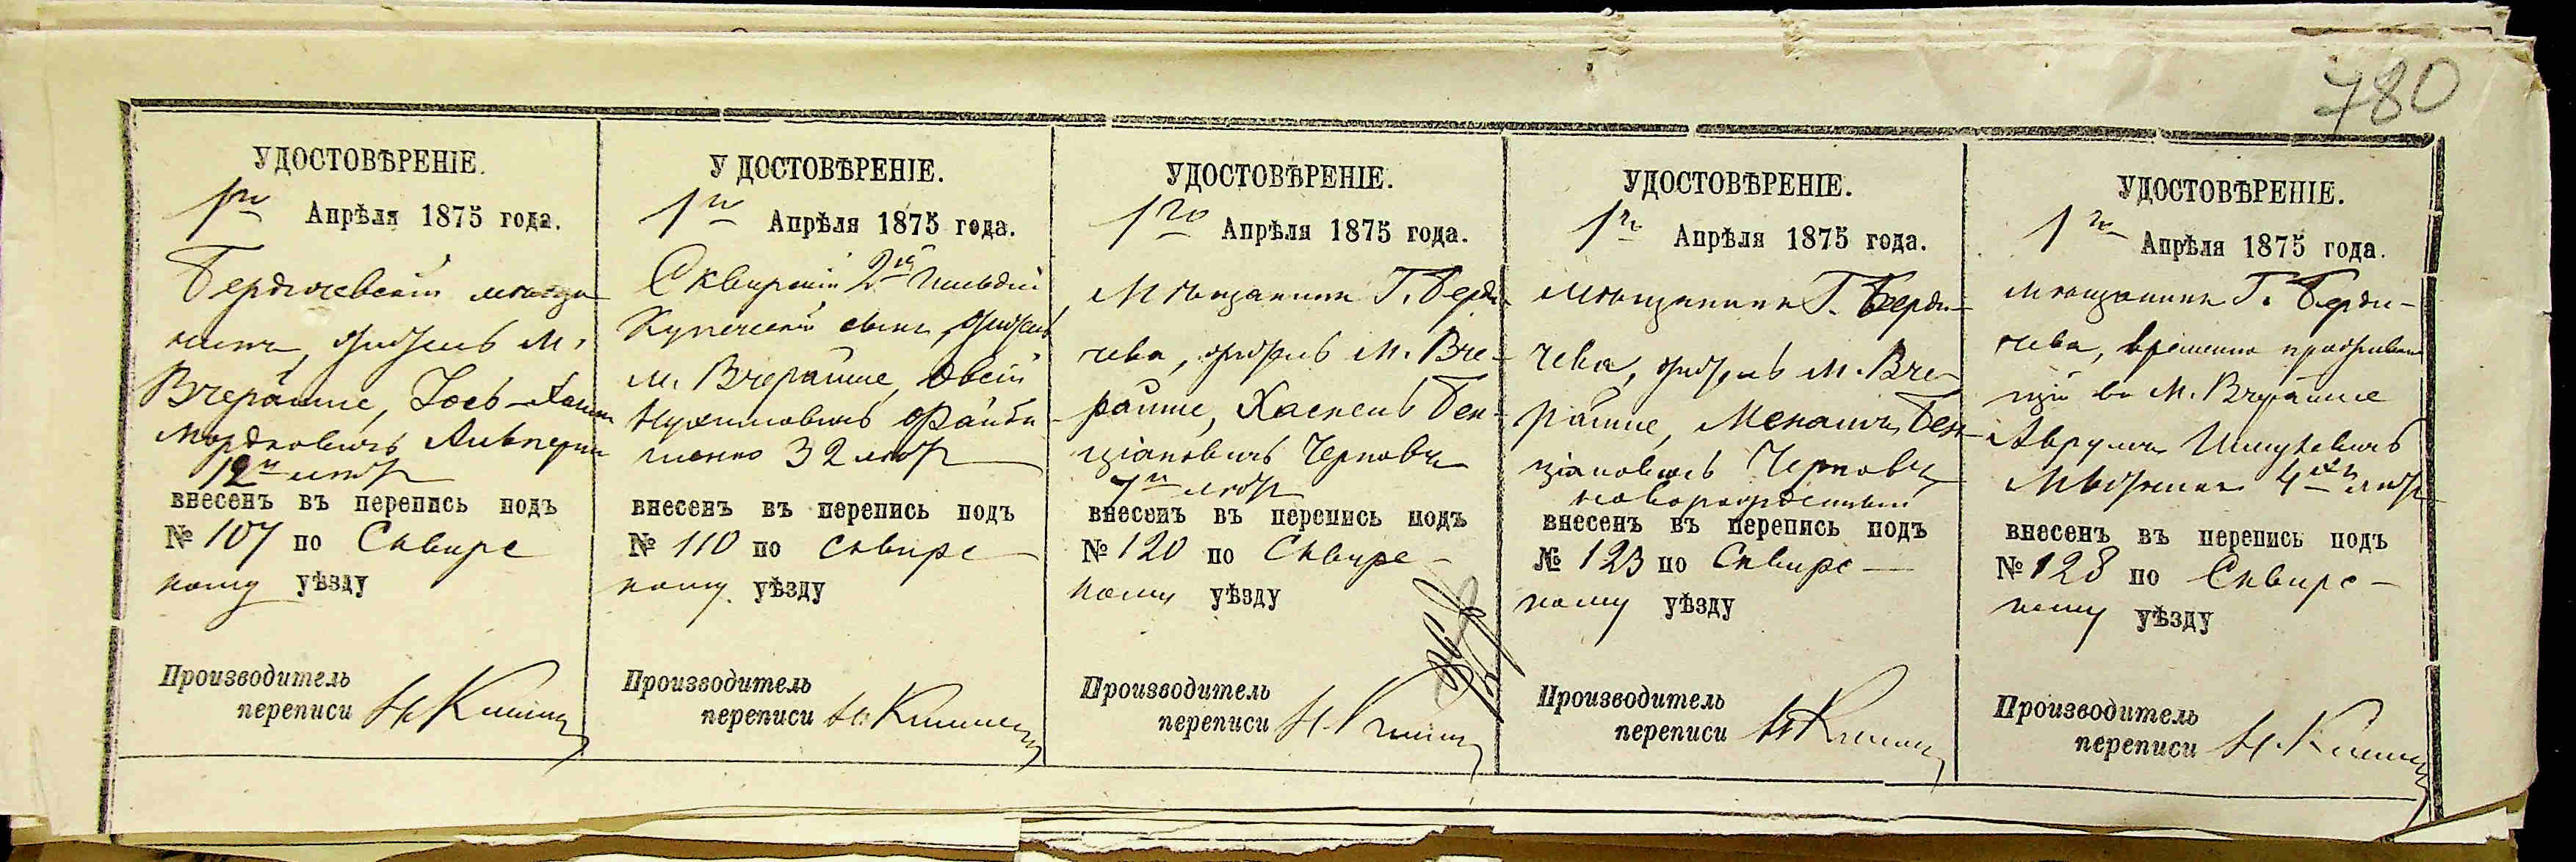 780
УДОСТОВѢРЕНІЕ.
1го Апрѣля 1875 года.
Бердичевскій мѣща-
нинъ, житель М.
Вчерайше, Іось-Хаимъ
Мордковичъ
12и лѣтъ
внесенъ въ перепись подъ
№ 107 по Сквирс
кому уѣзду
Производитель
переписи
У ДОСТОВѢРЕНІЕ.
1го Апрѣля 1875 года.
Сквирскій 2й Гильдіи
Купеческій сынъ, житель
м. Вчерайше, Овсій
32 лѣтъ
внесенъ въ перепись подъ
№ 110 по Сквирс
кому уѣзду
Производитель
переписи
УДОСТОВѢРЕНІЕ.
1го Апрѣля 1875 года.
Мѣщанинъ Г. Берди-
чева, житель М. Вче-
райше, Хаскель Бен-
ціановичъ Черновъ
7и лѣтъ
внесенъ въ перепись подъ
№ 120 по Сквирс-
кому уѣзду
Производитель
переписи
УДОСТОВѢРЕНІЕ.
1го Апрѣля 1875 года.
Мѣщанинъ Г. Берди-
чева, житель М. Вче-
райше, Бен-
ціановичъ Черновъ
новорожденный
внесенъ въ перепись подъ
№ 123 по Сквирс-
кому уѣзду
Производитель
переписи
УДОСТОВѢРЕНІЕ.
1го Апрѣля 1875 года.
Мѣщанинъ Г. Берди-
чева, временно проживаю
щій въ М. Вчерайше
Аврумъ
4хъ лѣтъ
внесенъ въ перепись подъ
№ 128 по Сквирс-
кому уѣзду
Производитель
переписи